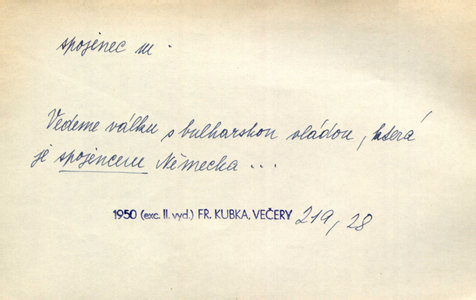 spojenec m.
Vedeme válku s bulharskou vládou, která
je spojencem Německa ...
1950 (exc. II. vyd.) FR. KUBKA, VEČERY 219, 28